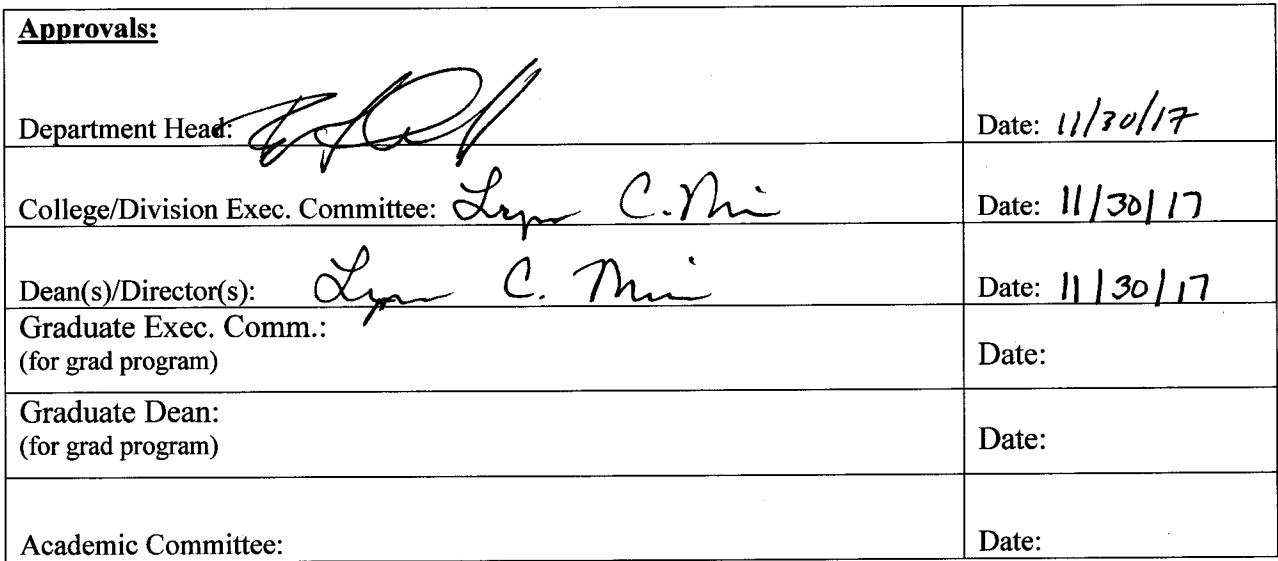 Approvals:
Department Head: Date: 11/30/17
College/Division Exec. Committee: Lynn C. Date: 11/30/17
Dean(s)/Director(s): Lynn C. Date: 11/30/17
Graduate Exec. Comm.:
(for grad program) Date:
Graduate Dean:
(for grad program) Date:
Academic Committee: Date: